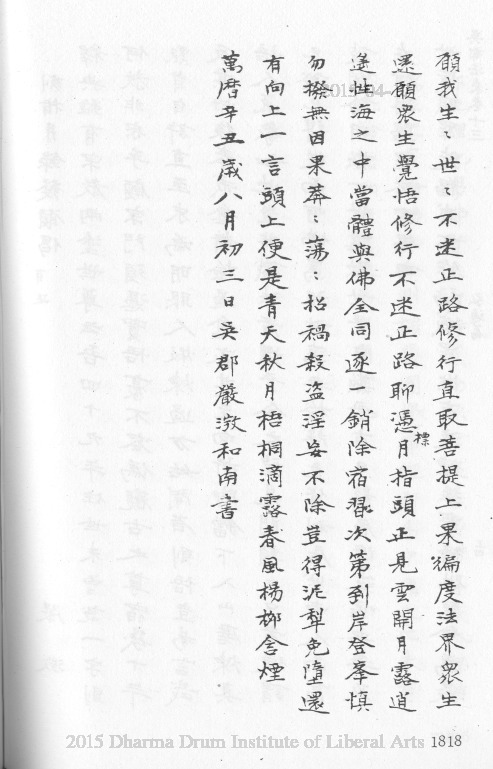 願我生〻世〻不迷正路修行直取菩提上果徧度法界衆生
還願衆生覺悟修行不迷正路聊憑標月指頭正見雲開月露逍
遙性海之中當體與佛全同逐一銷除宿習次第到岸登峯慎
勿撥無因果莽〻蕩〻招禍殺盗淫妄不除豈得泥犁免墮還
有向上一言頭上便是青天秋月梧桐滴露春風楊柳含煙
萬曆辛丑歲八月初三日吳郡嚴澂和南書
2015 Dharma Drum Institute of Liberal Arts 1818